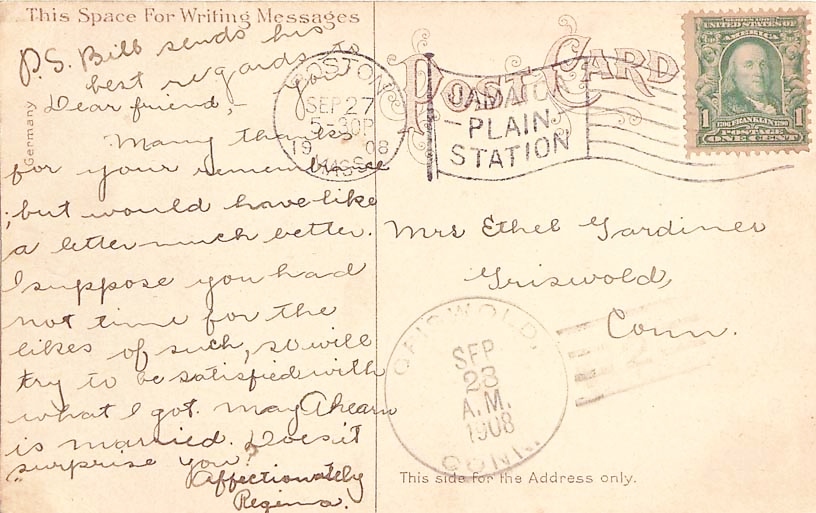 This Space For Writing Messages
P.S. Bill sends his
best regards to
you
Dear friend,-
Many thanks
for your remembrance
but would have like
a letter much better.
I suppose you had
not time for the
likes of such, so will
try to be satisfied with
what I got. May Ahearn
is married. Does it
surprise you?
Affectionately
Regina.
Germany
POST CARD
BOSTON
SEP 27
5-30P
1908
MASS.
JAMAICA
PLAIN
STATION
SERIES 1902
UNITED STATES OF
AMERICA
1 1
1706 FRANKLIN 1790
POSTAGE
ONE CENT
Mrs Ethel Gardiner
Griswold,
Conn.
GRISWOLD,
SEP
28
A.M.
1908
CONN.
This side for the Address only.